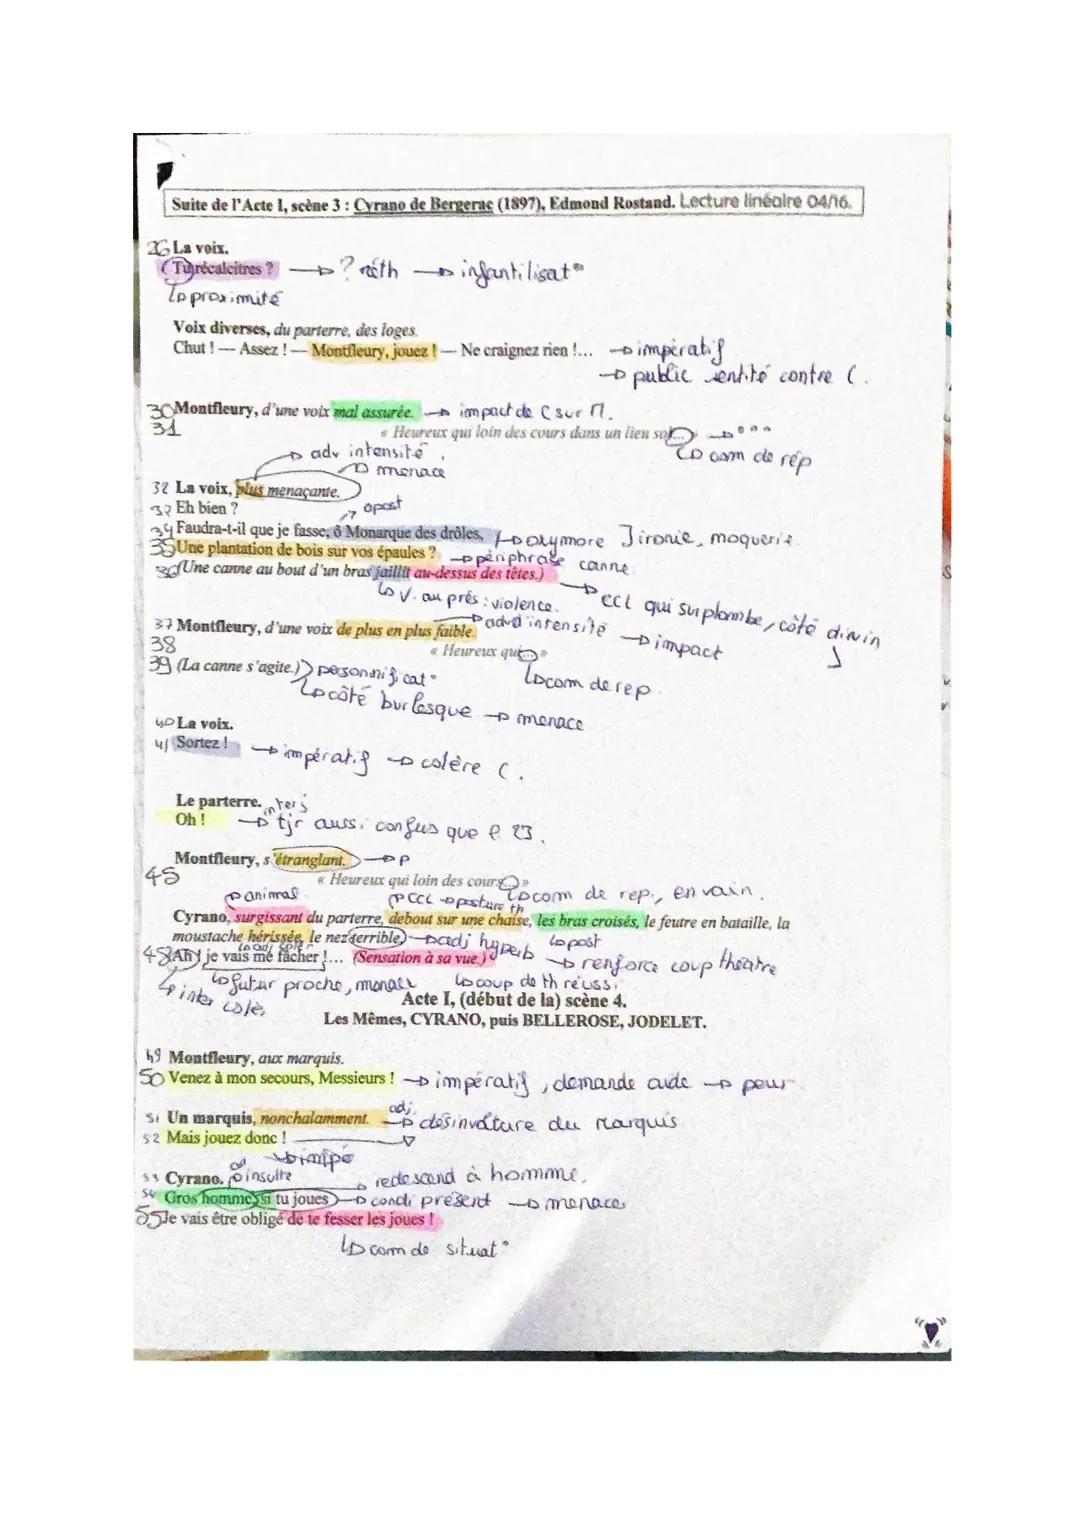 Suite de l'Acte 1, scène 3 : Cyrano de Bergerac (1897), Edmond Rostand. Lecture linéaire 04/16.
26 La voix.
Tu récalcitres ? → ? réth → infantilisat°
↳ proximité
Voix diverses, du parterre, des loges.
Chut ! — Assez ! — Montfleury, jouez ! — Ne craignez rien !... → impératif
→ public entité contre C.
30 Montfleury, d'une voix mal assurée. → impact de C sur M.
31 « Heureux qui loin des cours dans un lieu sol... » → °°°
↳ com de rép
→ adv intensité
→ menace
32 La voix, plus menaçante.
33 Eh bien ?
↗ apost
34 Faudra-t-il que je fasse, ô Monarque des drôles, → oxymore ] ironie, moquerie.
35 Une plantation de bois sur vos épaules ? → périphrase canne
36 (Une canne au bout d'un bras jaillit au-dessus des têtes.)
↳ v. au prés : violence. → ccl qui surplombe, côté divin
→ adv d'intensité → impact
37 Montfleury, d'une voix de plus en plus faible.
38 « Heureux qui... »
↳ com de rep.
39 (La canne s'agite.) personnificat°
↳ côté burlesque → menace
40 La voix.
41 Sortez ! → impératif → colère C.
Le parterre. interj
Oh ! → tjr aussi confus que l. 23.
Montfleury, s'étranglant. → P
45 « Heureux qui loin des cours... »
↳ com de rep., en vain.
→ animal
→ CCL → posture th
Cyrano, surgissant du parterre, debout sur une chaise, les bras croisés, le feutre en bataille, la
moustache hérissée, le nez terrible. → adj hyperb
↳ adj colèr
↳ post
→ renforce coup théatre
48 Ah ! je vais me fâcher !... (Sensation à sa vue.)
↳ futur proche, menace
↳ coup de th réussi
↳ inter colèr
Acte I, (début de la) scène 4.
Les Mêmes, CYRANO, puis BELLEROSE, JODELET.
49 Montfleury, aux marquis.
50 Venez à mon secours, Messieurs ! → impératif, demande aide → peur
51 Un marquis, nonchalamment. adj. → désinvolture du marquis.
52 Mais jouez donc !
→ impé
53 Cyrano. → insulte
→ redescend à homme.
54 Gros homme, si tu joues → condi présent → menace
55 Je vais être obligé de te fesser les joues !
↳ com de situat°